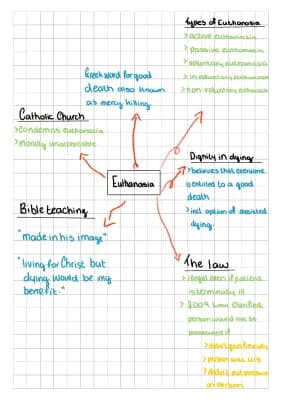 Types of Euthanasia
> active euthanasia
> passive euthanasia
> voluntary euthanasia
> involuntary euthanasia
> non voluntary euthanasia
Greek word for good
death also known
as mercy killing.
Catholic Church
> condemns euthanasia
> morally unacceptable
Dignity in dying
> believes that everyone
is entitled to a good
death
> incl option of assisted
dying.
Euthanasia
Bible teaching
"made in his image"
"living for Christ but
dying would be my
benefit."
The law
> illegal even if patient
is terminally ill
> 2009 law clarified
person would not be
prosecuted if
> didn't gain financially
> person was ill
> didn't put pressure
on person